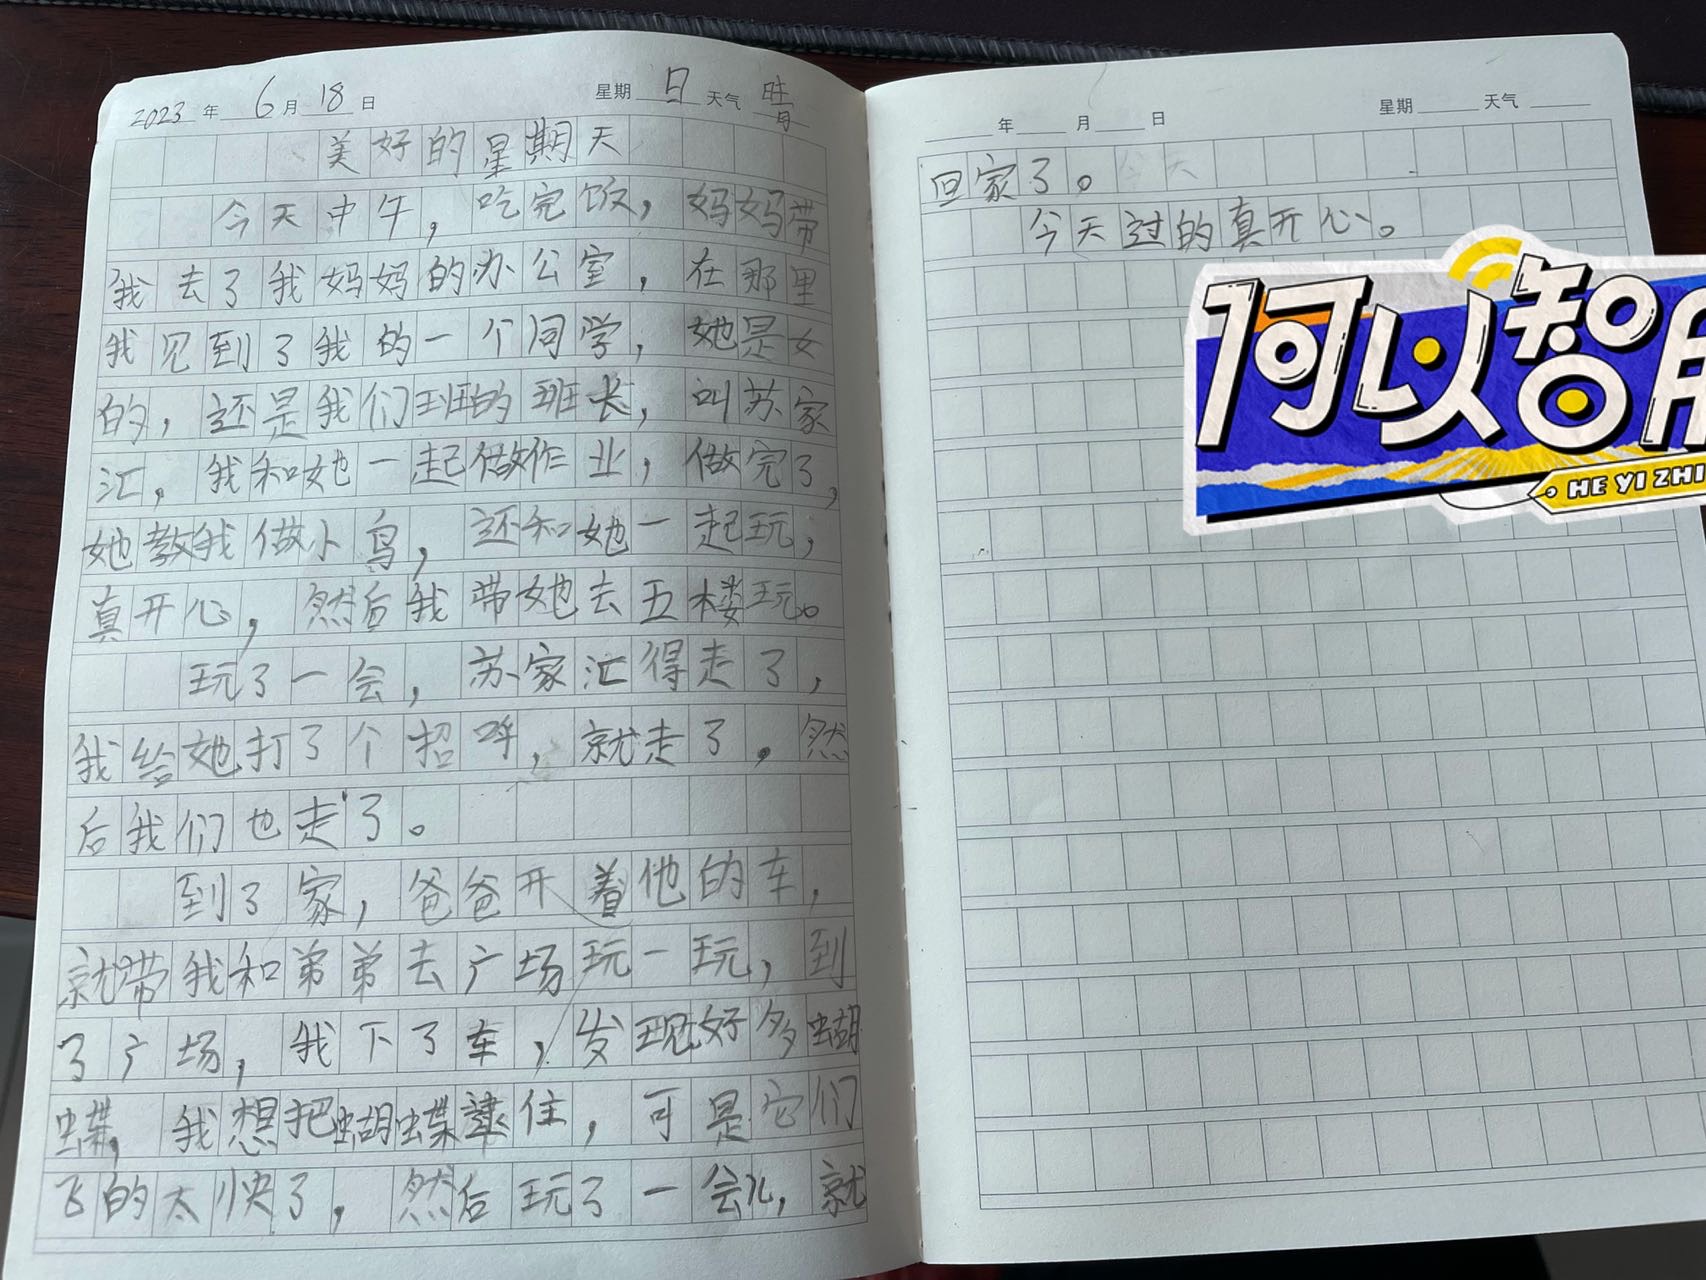 2023年 6月 18日 星期 日 天气 晴
美好的星期天
今天中午，吃完饭，妈妈带
我去了我妈妈的办公室，在那里
我见到了我的一个同学，她是女
的，还是我们班的班长，叫苏家
汇，我和她一起做作业，做完了，
她教我做小鸟，还和她一起玩，
真开心，然后我带她去五楼玩。
玩了一会，苏家汇得走了，
我给她打了个招呼，就走了。然
后我们也走了。
到了家，爸爸开着他的车，
就带我和弟弟去广场玩一玩，到
了广场，我下了车，发现好多蝴
蝶，我想把蝴蝶逮住，可是它们
飞的太快了，然后玩了一会儿，就
年 月 日 星期 天气
回家了。今天
今天过的真开心。
何以智
HE YI ZHI